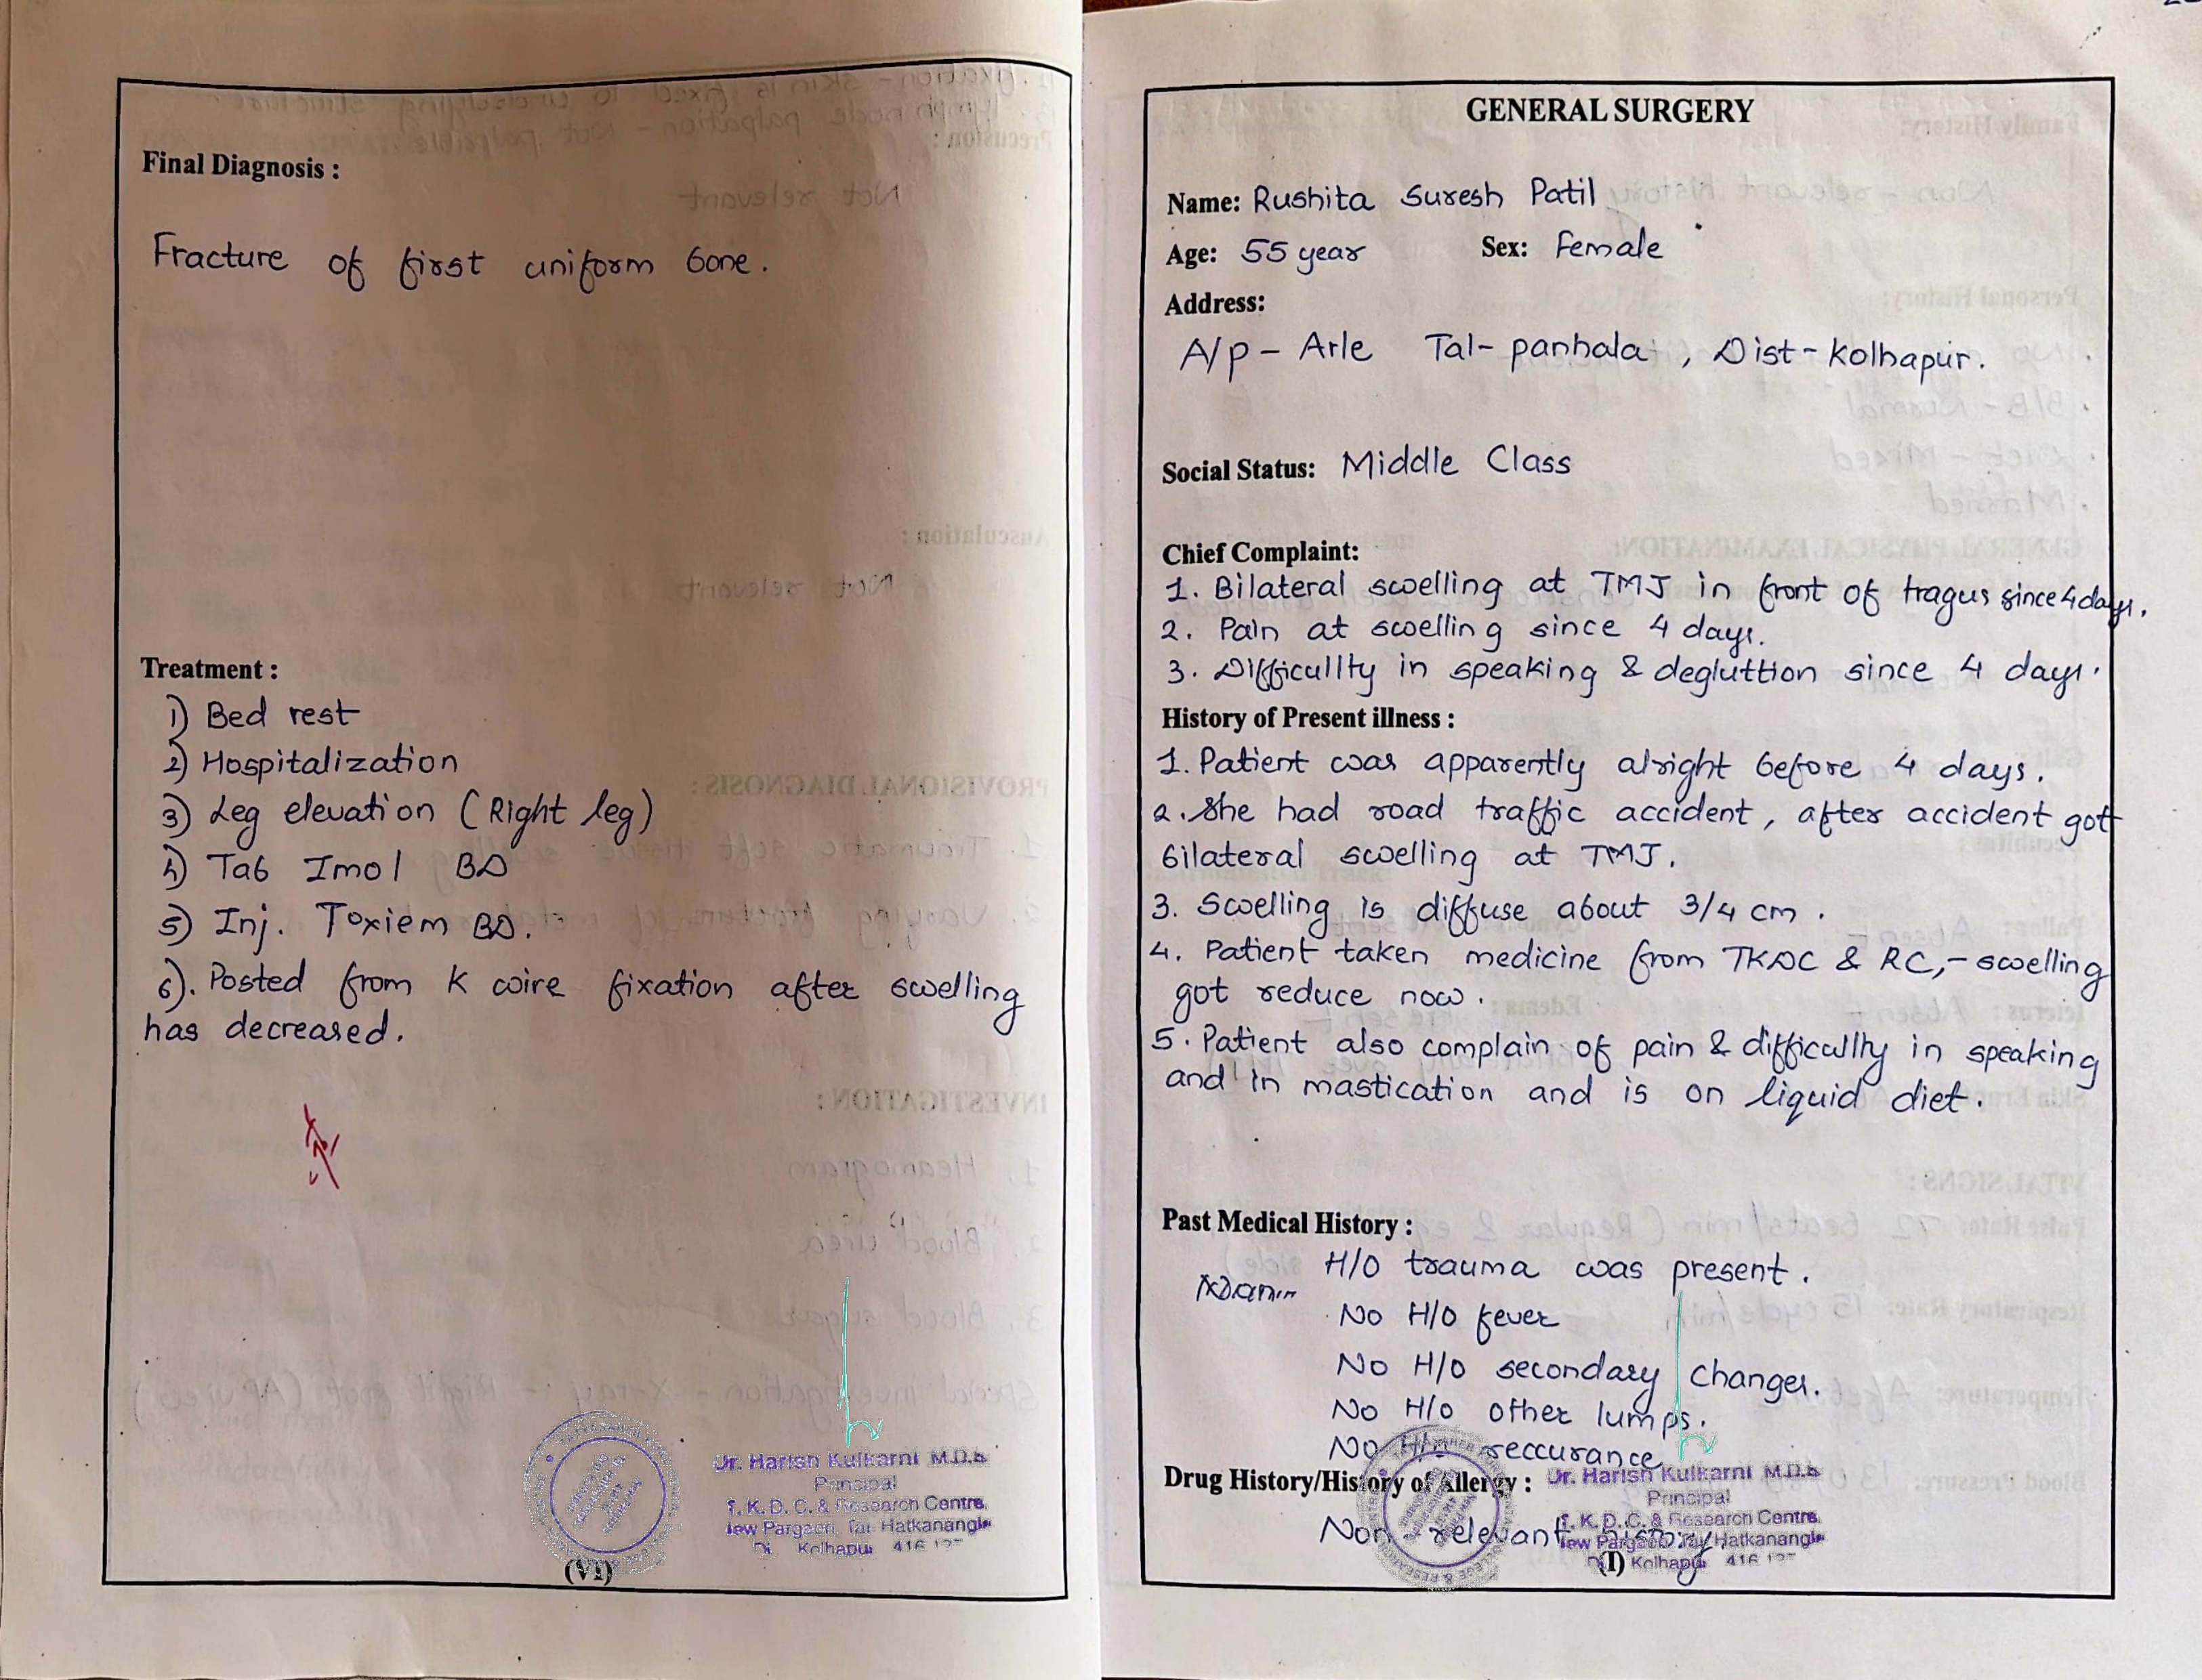 Final Diagnosis :
Fracture of first cuniform bone.
Treatment :
1) Bed rest
2) Hospitalization
3) Leg elevation (Right leg)
4) Tab Imol BD
5) Inj. Toxiem BD.
6). Posted from K wire fixation after swelling
has decreased.
Dr. Harish Kulkarni M.D.S
Principal
T. K. D. C. & Research Centre,
New Pargaon, Tal Hatkanangle
Kolhapur 416
(VI)
GENERAL SURGERY
Name: Rushita Suresh Patil
Age: 55 year Sex: Female
Address:
A/p - Arle Tal- panhala , Dist - kolhapur.
Social Status: Middle Class
Chief Complaint:
1. Bilateral swelling at TMJ in front of tragus since 4 days.
2. Pain at swelling since 4 days.
3. Difficullty in speaking & degluttion since 4 days.
History of Present illness :
1. Patient was apparently alright before 4 days.
2. She had road traffic accident, after accident got
bilateral swelling at TMJ.
3. Swelling is diffuse about 3/4 cm .
4. Patient taken medicine from TKDC & RC,- swelling
got reduce now .
5. Patient also complain of pain & difficullty in speaking
and in mastication and is on liquid diet.
Past Medical History :
H/O trauma was present .
No H/O fever
No H/O secondary changes.
No H/O other lumps.
No H/O reccurance
Drug History/History of Allergy :
Non - relevant history
Dr. Harish Kulkarni M.D.S
Principal
T. K. D. C. & Research Centre,
New Pargaon, Tal Hatkanangle
Kolhapur 416
(I)